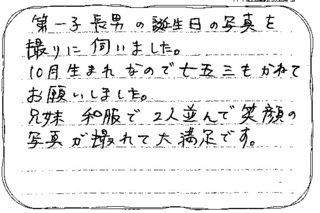 第一子長男の誕生日の写真を
撮りに伺いました。
10月生まれなので七五三もかねて
お願いしました。
兄妹 和服で2人並んで笑顔の
写真が撮れて大満足です。